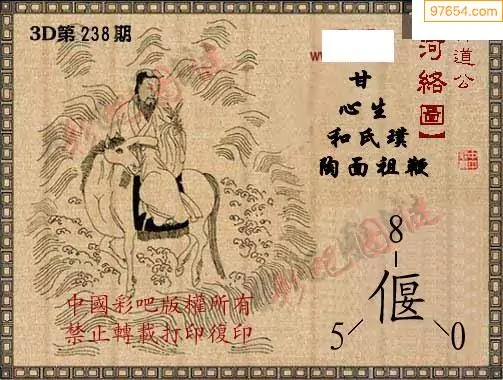 97654.com
3D第238期
甘
心生
和氏璞
陶面祖鞭
河络圖】
道公
8
偃
5
0
中國彩吧版權所有
禁止轉載打印復印